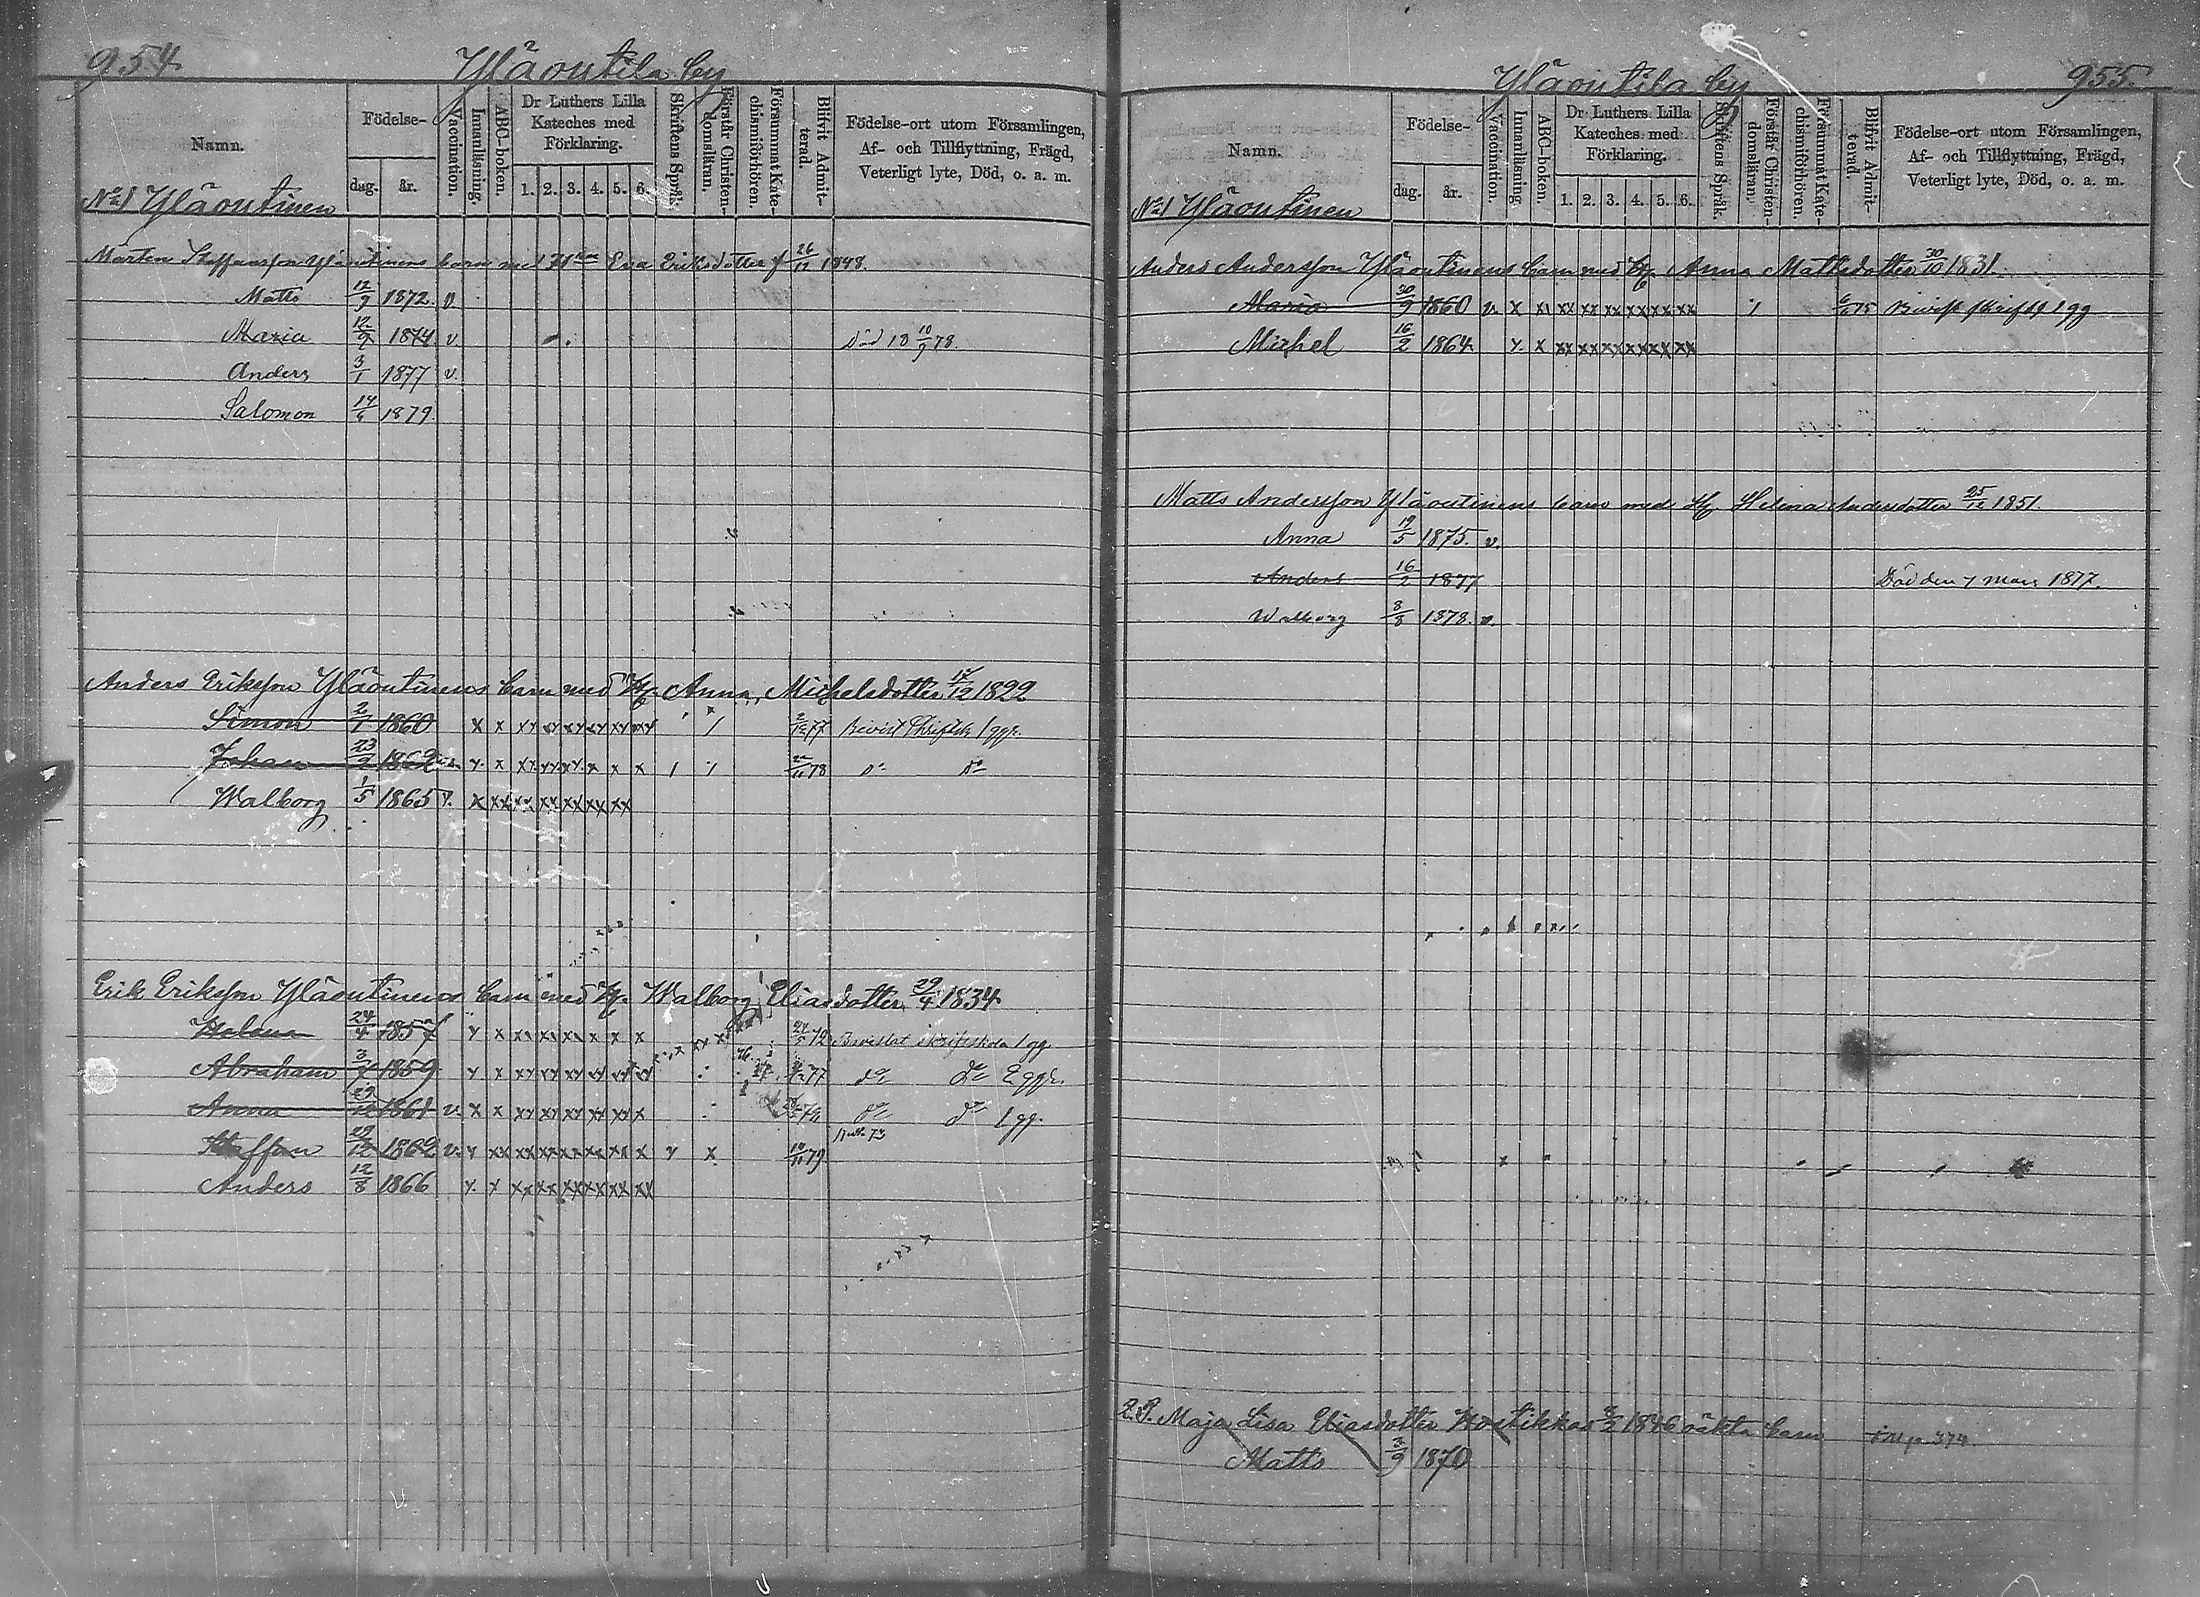 954
Yläoutila by
Namn.
Födelse-
dag.
år.
Vaccination.
Innanläsning.
ABC-boken.
Dr Luthers Lilla
Kateches med
Förklaring.
1. 2. 3. 4. 5. 6.
Skriftens Språk.
Förstår Christen-
domsläran.
Försummat Kate-
chismiförhören.
Blifvit Admit-
terad.
Födelse-ort utom Församlingen,
Af- och Tillflyttning, Frägd,
Veterligt lyte, Död, o. a. m.
No 1 Yläoutinen
Mårten Staffansson Yläoutinens barn med Eva Eriksdotter f 26/12 1848.
Matts 12/9 1872. v.
Maria 12/9 1874. v. Död 18 10/9 78.
Anders 3/1 1877 v.
Salomon 14/6 1879.
Anders Eriksson Yläoutinens barn med H. Anna Michelsdotter 17/12 1822
Simon 2/1 1860 x x xx xx xx xx xx xx / 77 Bevist Skriftsk 1 ggr.
Johan 23/2 1862 v. x. x xx. xx. xx. x x x / / 78 do do
Walborg 1/5 1865 v. x xx xx xx xx xx xx
Erik Eriksson Yläoutinens barn med H. Walborg Eliasdotter 29/4 1834
Helena 24/4 1857 x x xx xx xx x x x Bevistat skriftskola 1 gg
Abraham 1859 x x xx xx xx xx xx xx 77 do do 2 ggr.
Anna 1861 v. x x xx xx xx xx xx x do do 1 gg.
Staffan 29/12 1862 v. x xx xx xx xx xx xx x x x 79
Anders 12/8 1866 x. x xx xx xx xx xx xx
955.
Yläoutila by
Namn.
Födelse-
dag.
år.
Vaccination.
Innanläsning
ABC-boken.
Dr Luthers Lilla
Kateches med
Förklaring.
1. 2. 3. 4. 5. 6.
Skriftens Språk.
Förstår Christen-
domsläran.
Försummat Kate-
chismiförhören.
Blifvit Admit-
terad.
Födelse-ort utom Församlingen,
Af- och Tillflyttning, Frägd,
Veterligt lyte, Död, o. a. m.
No 1 Yläoutinen
Anders Andersson Yläoutinens barn med H. Anna Mattsdotter 30/10 1831.
Maria 30/9 1860 v. x xx xx xx xx xx xx xx / 75 Bevist skriftsk 1 gg
Michel 16/2 1864 x. x xx xx xx xx xx xx
Matts Andersson Yläoutinens barn med H. Helena Andersdotter 25/12 1851.
Anna 19/5 1875. v.
Anders 16/2 1877 Död den 7 Mars 1877.
Walborg 8/8 1878. v.
2. P. Maja Lisa Eliasdotter Hostikkas 1846 oäkta barn p 374.
Matts 3/9 1870